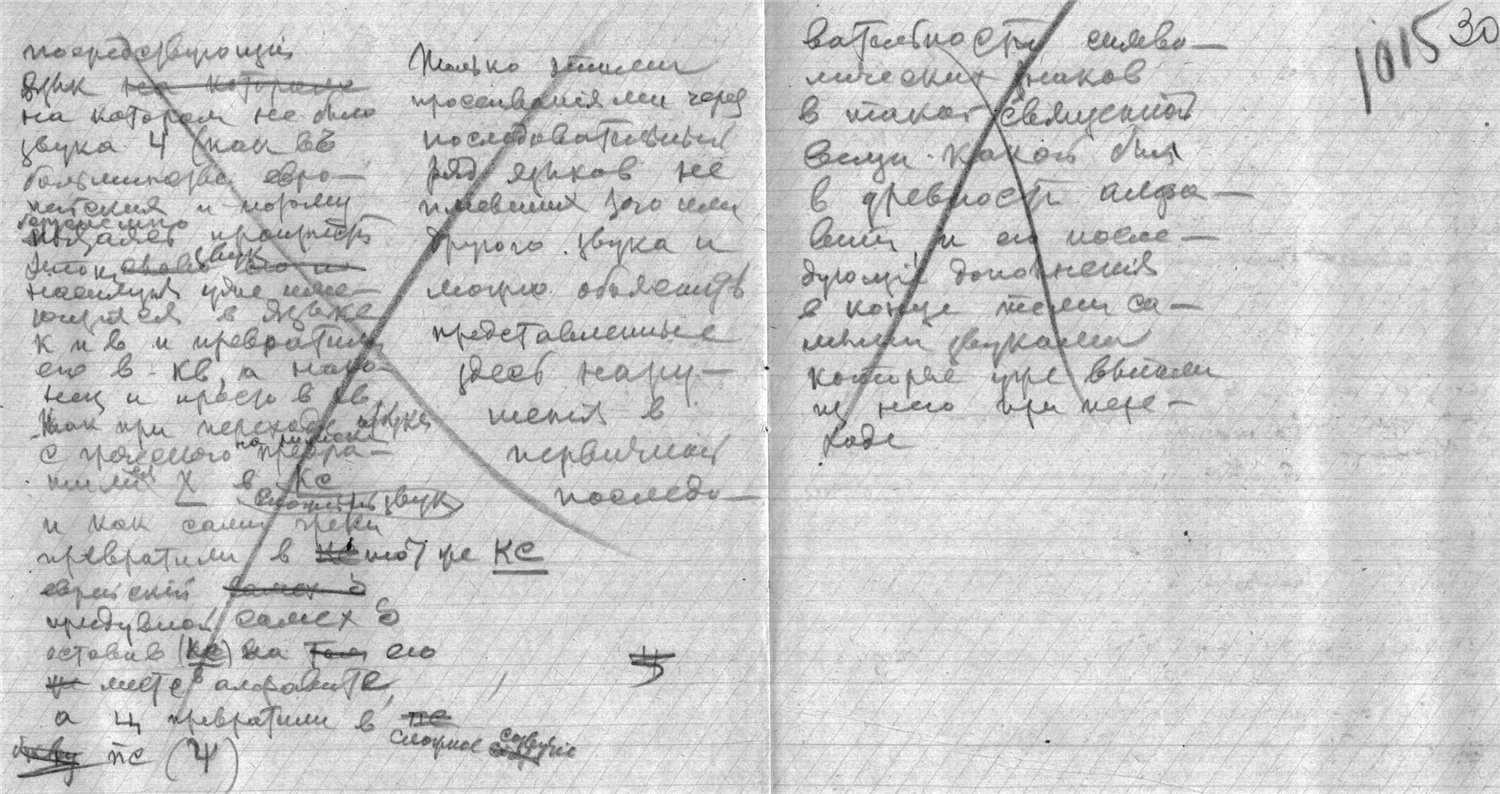 посредствующій
язык на котором
на котором не было
звука Ч (как въ
большинстве евро-
пейских и потому
безуспешно
пытаясь произнести
звук
уже име-
ющимся в языке
к и в и превратили
его в кв, а нако-
нец и просто в кв,
Как при переходе азбуки
с греческого на русский превра-
тили Х в КС
сложный звук
и как сами греки
превратили в КС тоже КС
еврейский самех ס
придувной самех ס
оставив (КС) на том его
же месте в алфавите,
а Ц превратили в пс
сложное созвучіе
букву пс (Ψ)
Только этими
просеиваніями через
последовательный
ряд языков не
имевших того или
другого звука и
можно объяснить
представленные
здесь нару-
шенія в
первичной
последо-
Ц
вательности симво-
лических знаков
в такой священной
вещи какой был
в древности алфа-
вит, и его после-
дующій дополненія
в конце теми са-
мыми звуками
которые уже выпали
из него при пере-
ходе
1015
30